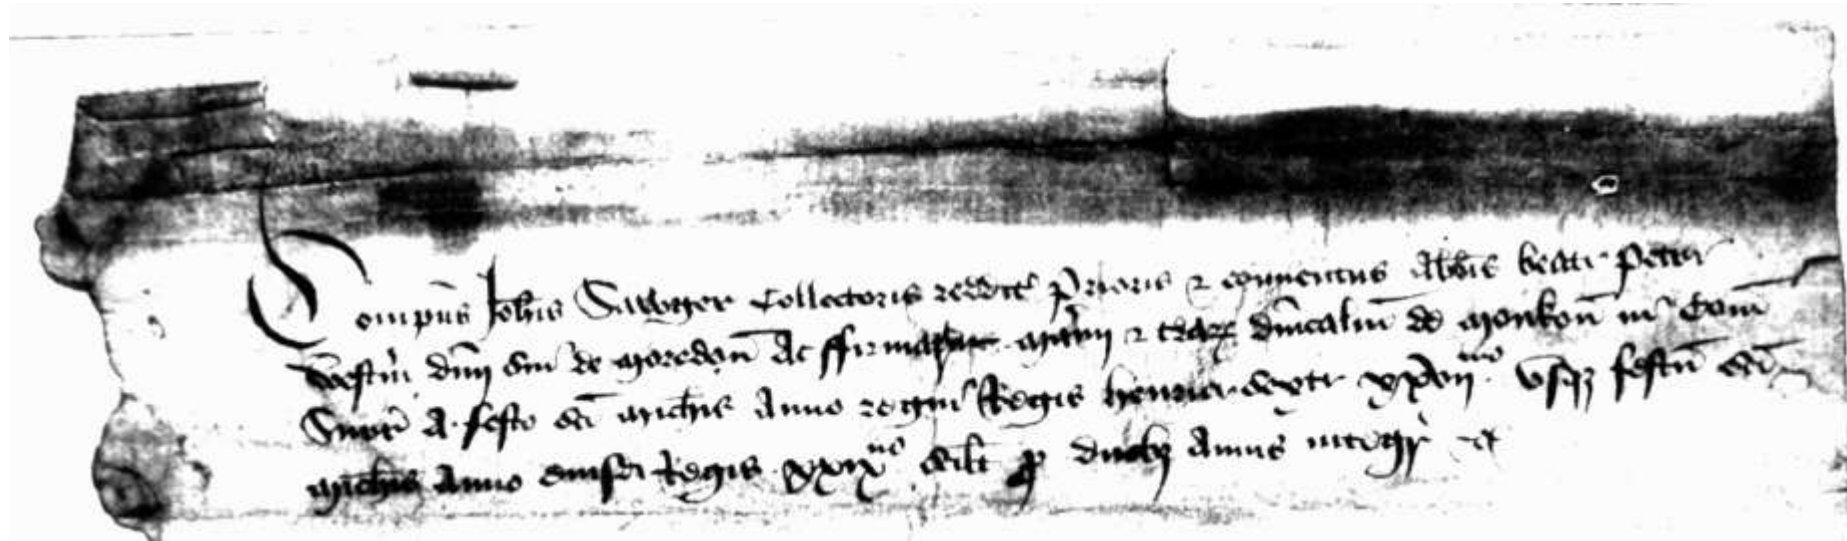 Compus Johis Sawyer Collectoris reddit Prioris & conventus Abbis beati Petri
Westm dni sui de Moredon Ac ffirmar Manii & terrar dnicaliu de in Com
A festo sci Michis Anno regni Regis henrici sexti xxvii mo vsq festu sci
Michis Anno eiusd Regis xxix no scilt p duobz Annis integr